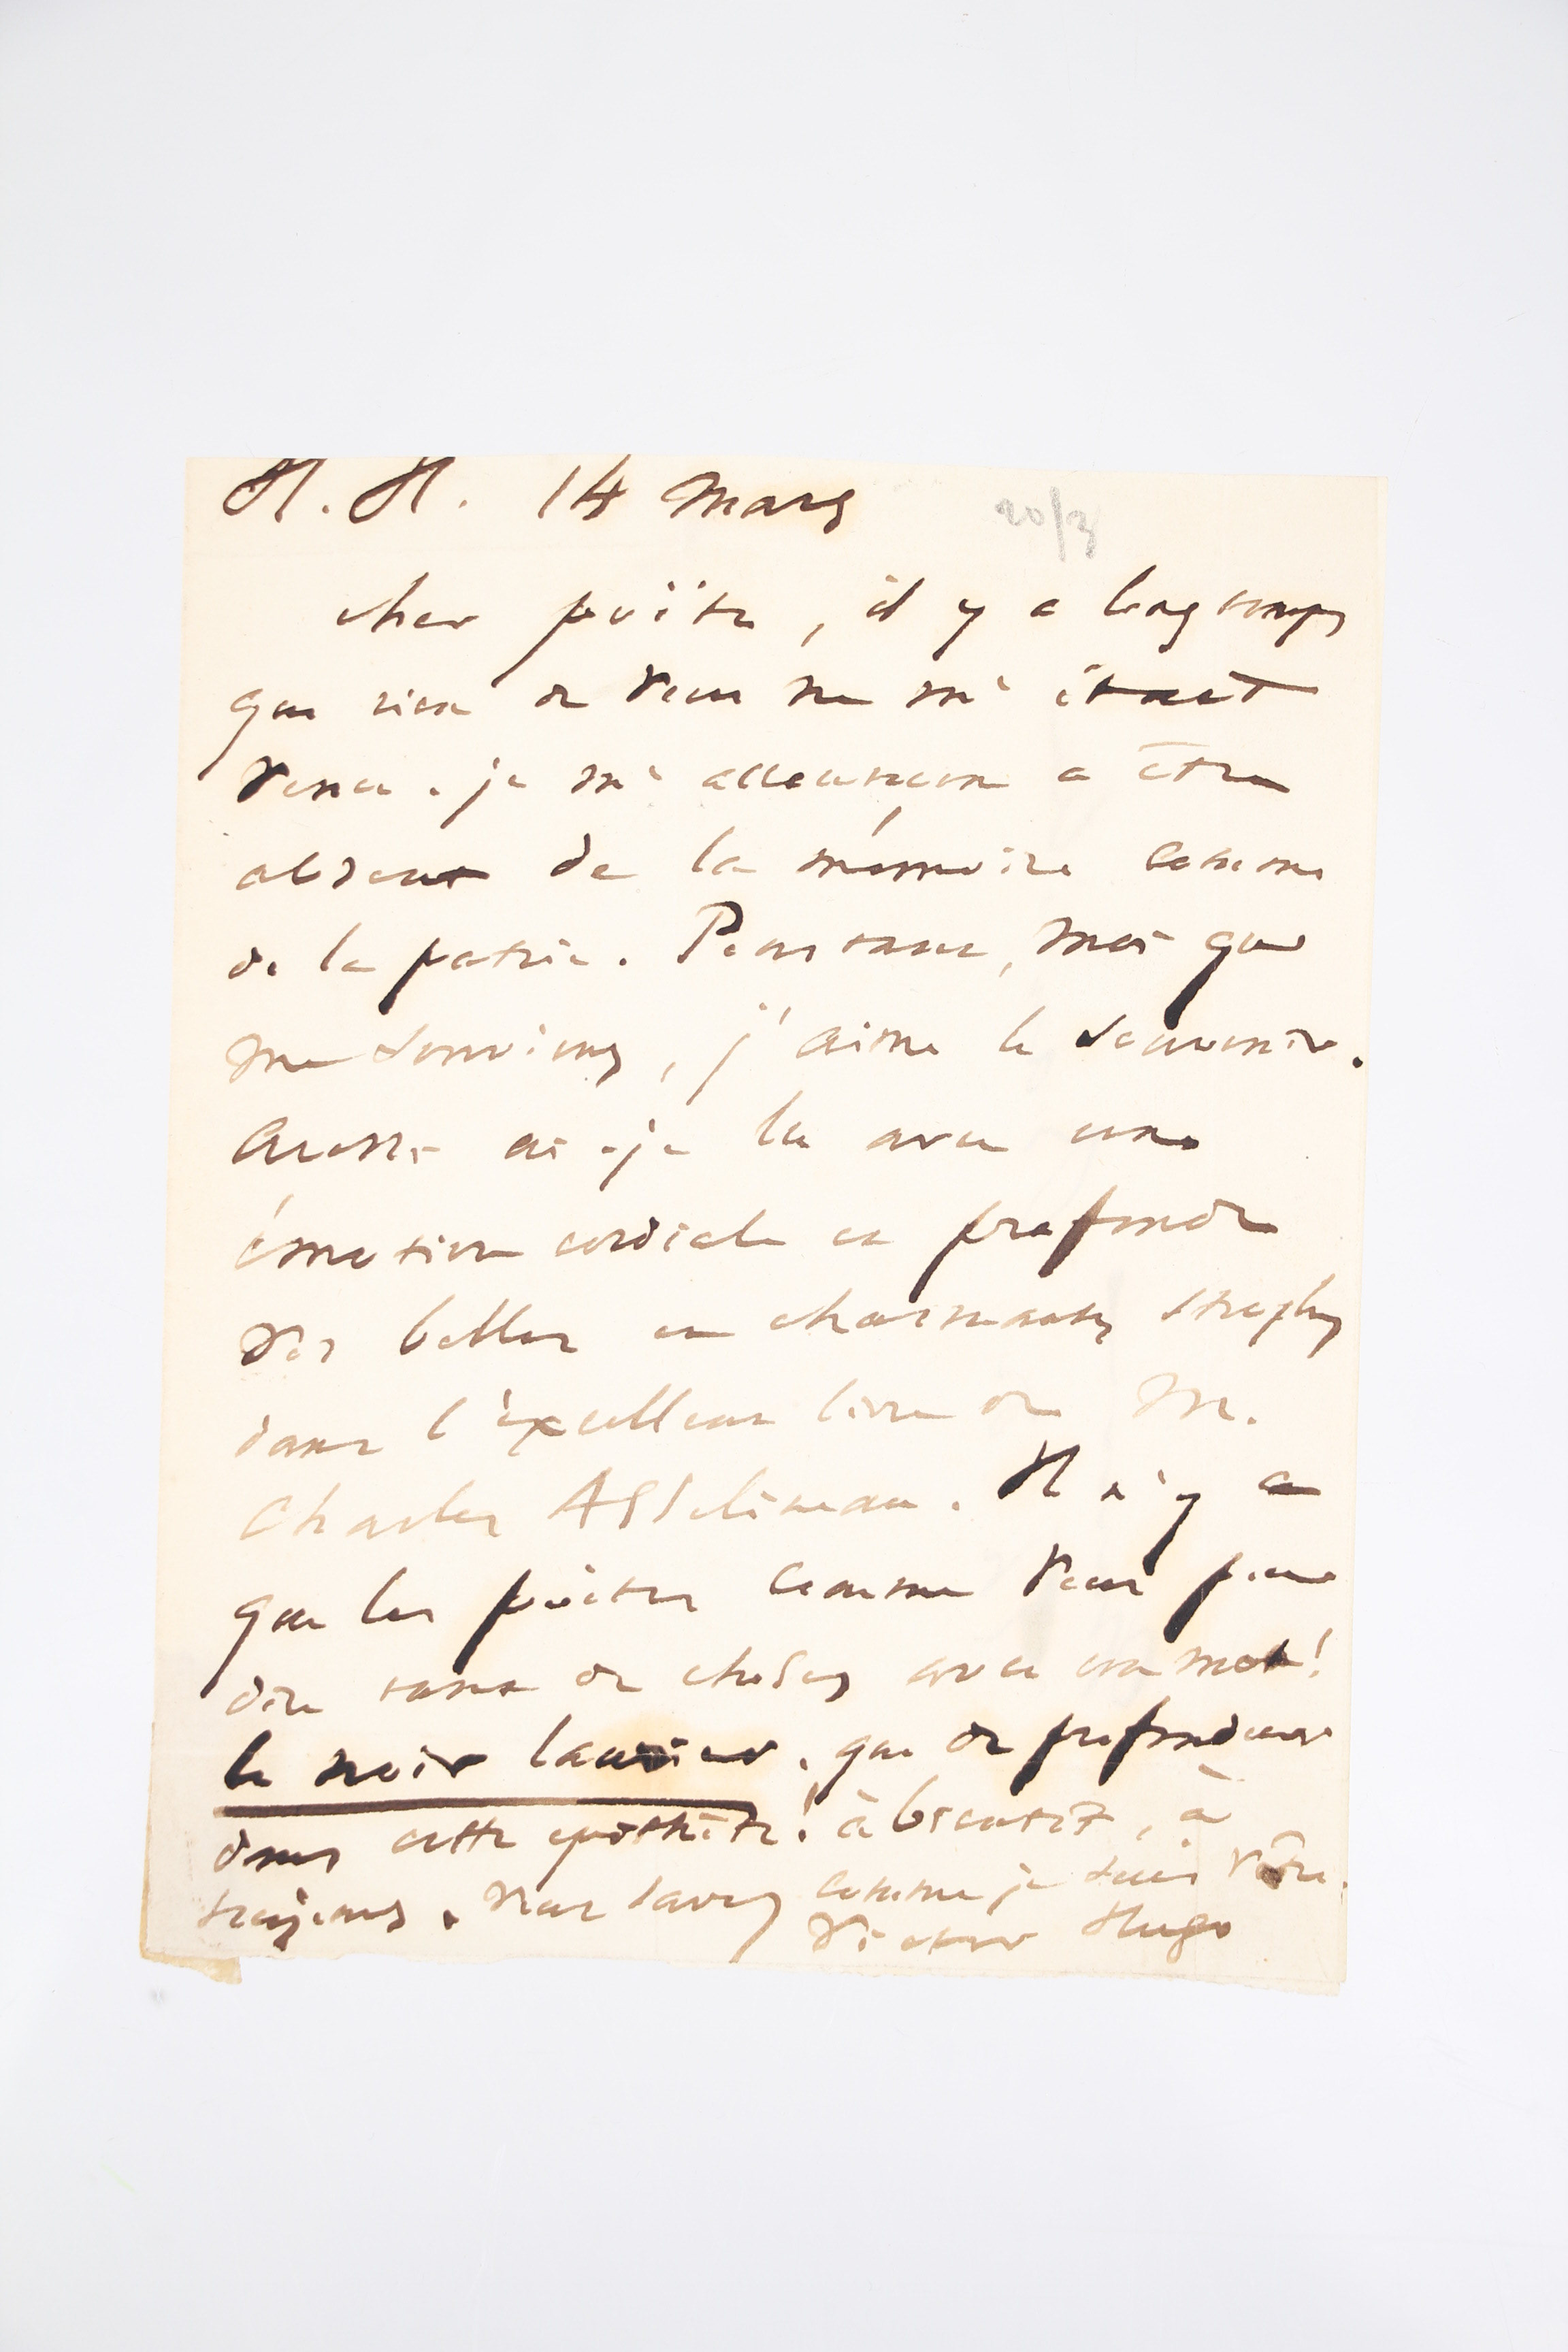 H. H. 14 mars
20/3
cher poëte, il y a longtemps
que rien de vous ne m'était
venu. je m'accoutume à être
absent de la mémoire comme
de la patrie. Pourtant, moi qui
me souviens, j'aime le souvenir.
Aussi ai-je lu avec une
émotion cordiale et profonde
vos belles et charmantes strophes
dans l'excellent livre de M.
Charles Asselineau. Il n'y a
que les poëtes comme vous pour
dire tant de choses avec un mot!
le noir laurier. que de profondeur
dans cette épithète! à bientôt, à
toujours. vous savez comme je suis vôtre.
Victor Hugo